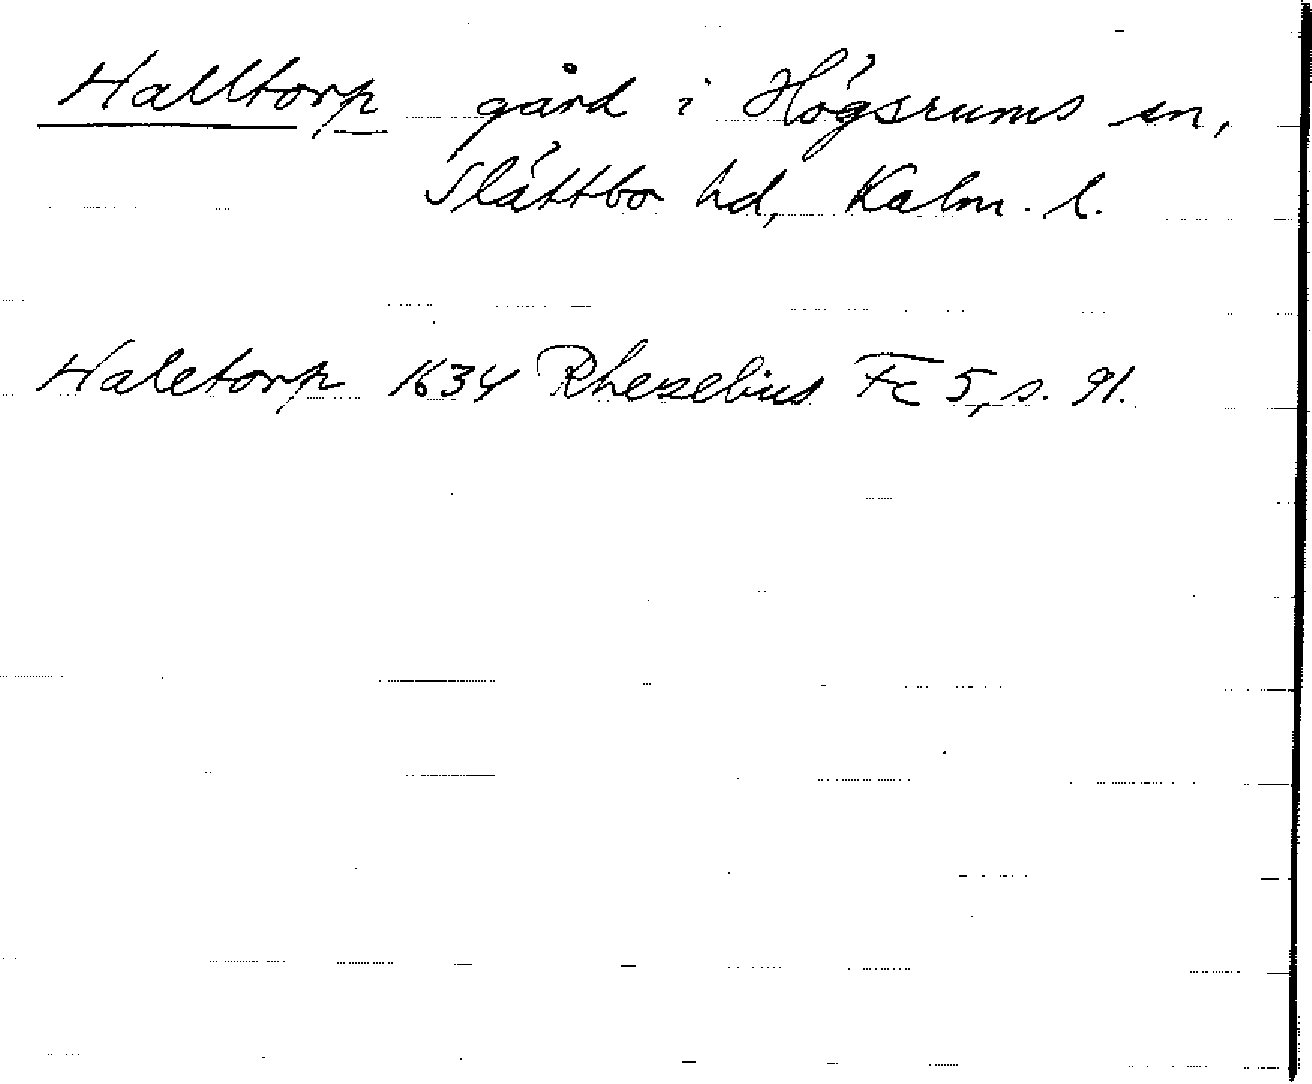 Halltorp gård i Högsrums sn,
Slättbo hd, Kalm. l.
Haletorp 1634 Rhezelius Fc 5, s. 91.